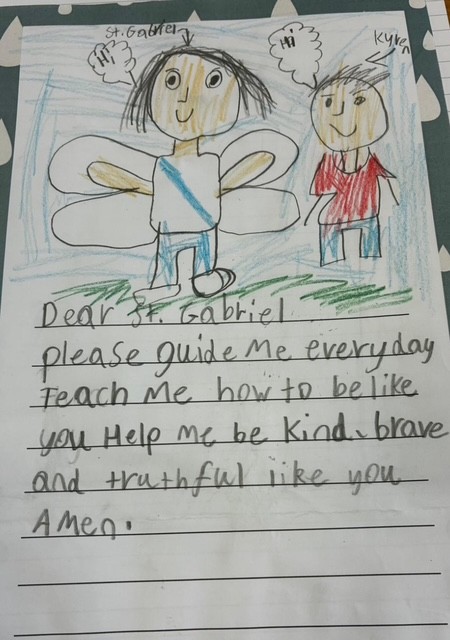 St. Gabriel
Hi
Hi
Kyren
Dear St. Gabriel
please guide me everyday
Teach me how to be like
you Help me be kind, brave
and truthful like you
Amen.